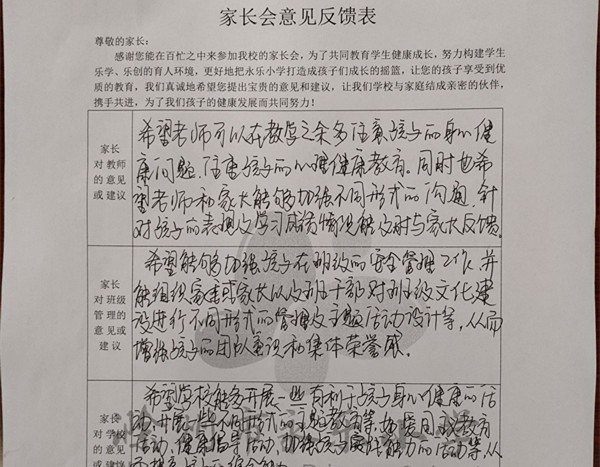 家长会意见反馈表
尊敬的家长:
感谢您能在百忙之中来参加我校的家长会,为了共同教育学生健康成长,努力构建学生
乐学、乐创的育人环境,更好地把永乐小学打造成孩子们成长的摇篮,让您的孩子享受到优
质的教育,我们真诚地希望您提出宝贵的意见和建议,让我们学校与家庭结成亲密的伙伴,
携手共进,为了我们孩子的健康发展而共同努力!
家长
对教师
的意见
或建议
希望老师可以在教学之余多注意孩子的身心健
康问题,注重孩子的心理健康教育。同时也希
望老师和家长能够加强不同形式的沟通,针
对孩子的表现及学习成绩情况能及时与家长反馈。
家长
对班级
管理的
意见或
建议
希望能够加强孩子在班级的安全管理工作,并
能组织家委或家长以及班干部对班级文化建
设进行不同形式的管理及主题活动设计等,从而
增强孩子的团队意识和集体荣誉感。
家长
对学校
的意见
或建议
希望学校能多开展一些有利于孩子身心健康的活
动,开展一些不同形式的主题教育等,如爱国教育
活动,健康倡导活动,加强孩子实践能力的活动等,从